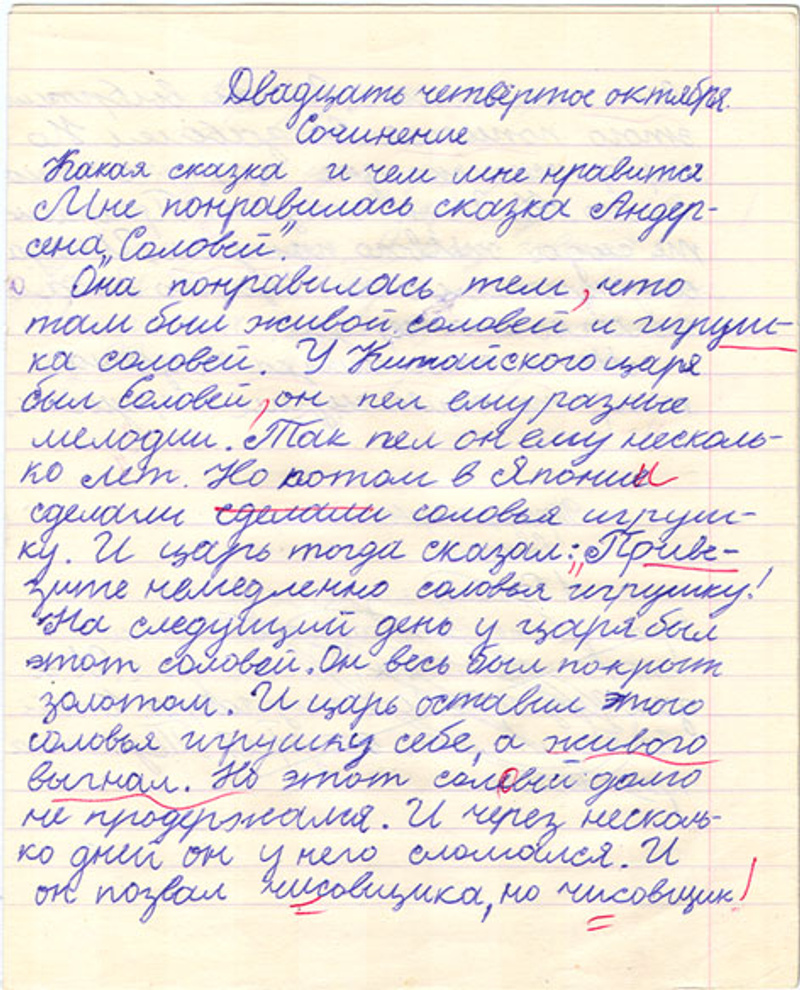 Двадцать четвёртое октября.
Сочинение
Какая сказка и чем мне нравится
Мне понравилась сказка Андер-
сена „Соловей".
Она понравилась тем, что
там был живой соловей и игруш-
ка соловей. У Китайского царя
был Соловей, он пел ему разные
мелодии. Так пел он ему несколь-
ко лет. Но потом в Японии
сделали сделали соловья игруш-
ку. И царь тогда сказал: „Приве-
зите немедленно соловья игрушку!"
На следущий день у царя был
этот соловей. Он весь был покрыт
золотом. И царь оставил этого
соловья игрушку себе, а живого
выгнал. Но этот соловей долго
не продержался. И через несколь-
ко дней он у него сломался. И
он позвал чисовщика, но чисовщик!